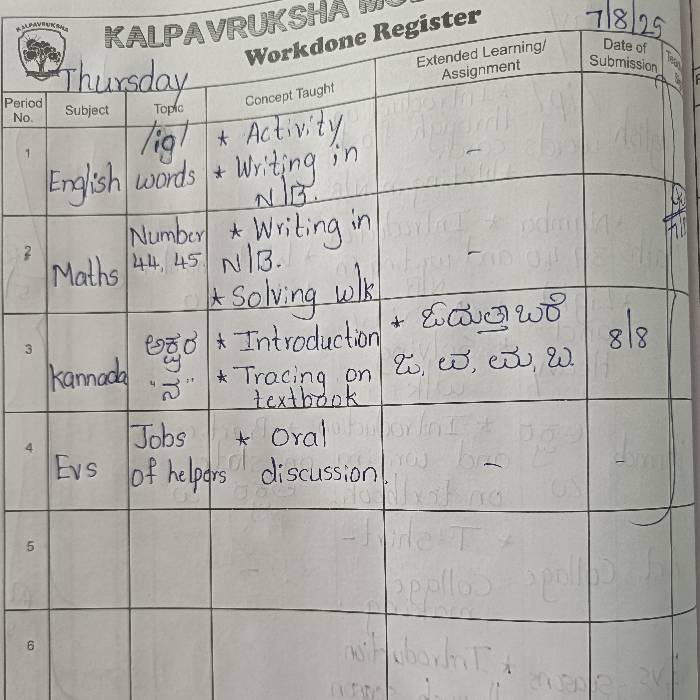 KALPAVRUKSHA
KALPAVRUKSHA
Workdone Register
7/8/25
Thursday
Period No. Subject Topic Concept Taught Extended Learning/ Assignment Date of Submission
1 English /ig/ words * Activity
* Writing in N/B. -
2 Maths Number 44, 45. * Writing in N/B.
* Solving w/k -
3 Kannada ಅಕ್ಷರ "ನ" * Introduction
* Tracing on textbook * ಓದುತ್ತಾ ಬರೆ 8/8
4 Evs Jobs of helpers * Oral discussion. - -
5
6